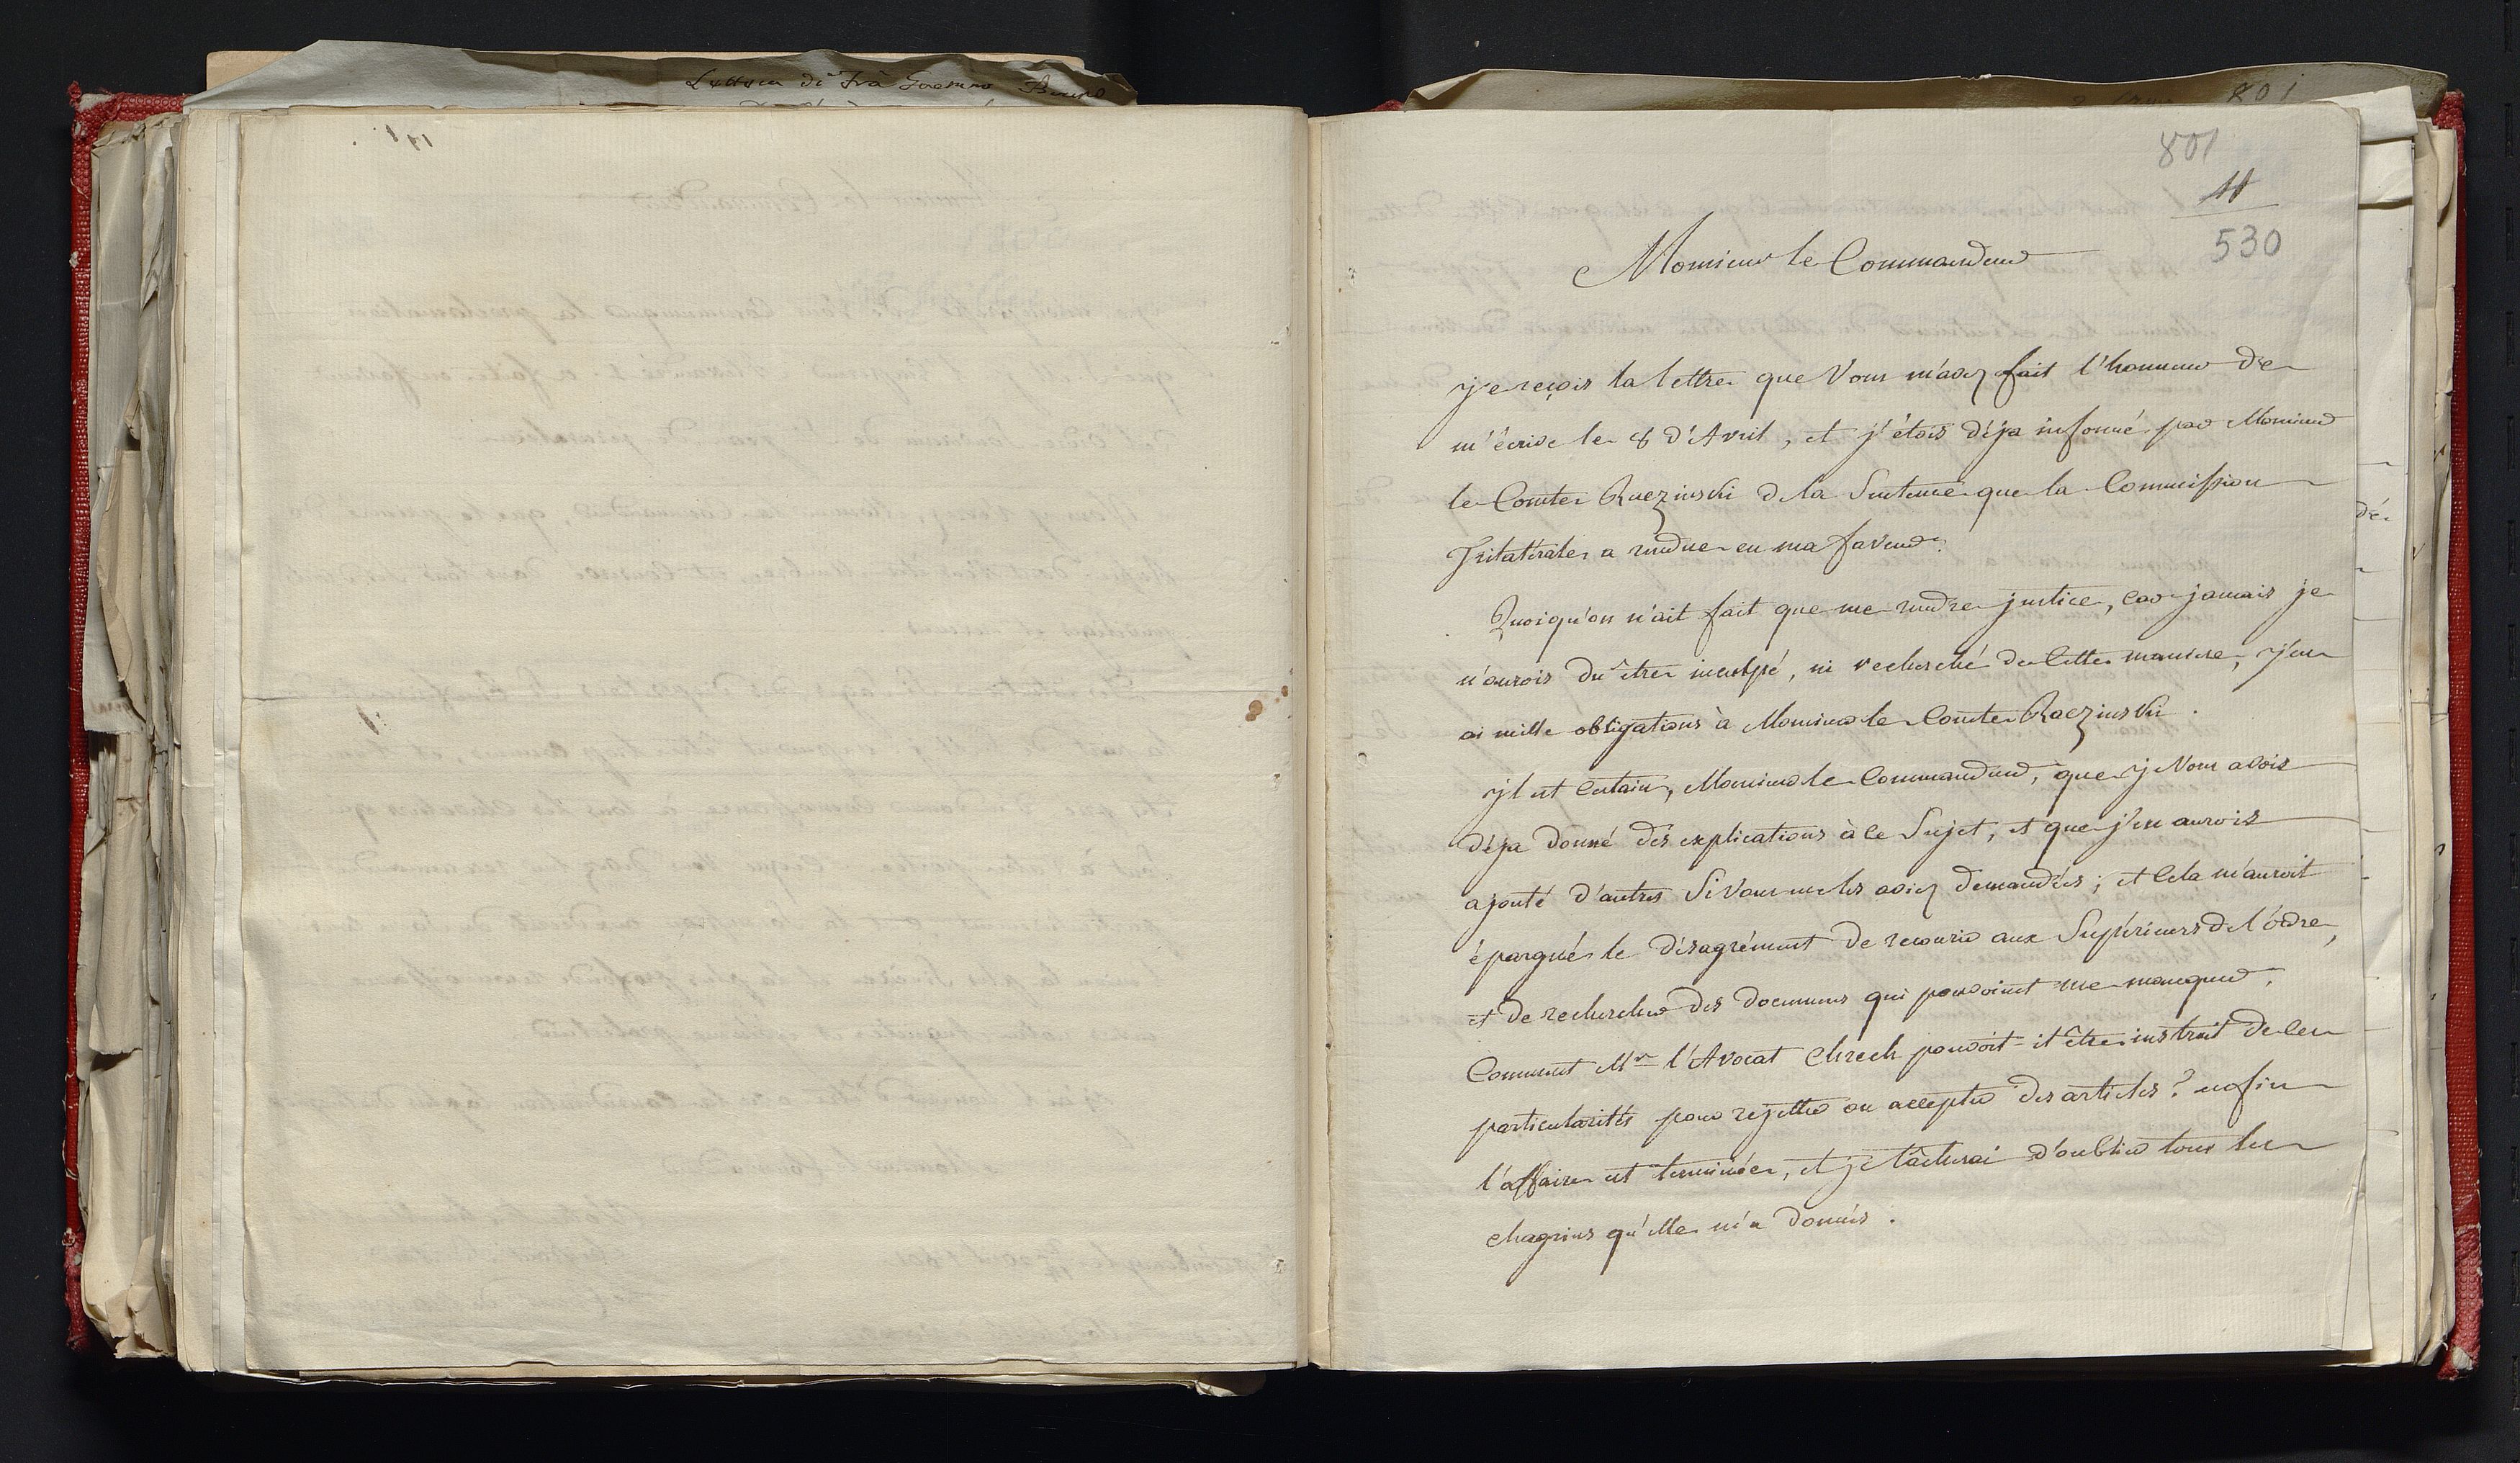 Lettera di Frà
801
801
11
530
Monsieur le Commandeur
je reçois la lettre que Vous m'avez fait l'honneur de
m'écrire le 8 d'Avril, et j'étois déja informé par Monsieur
le Comte Raczinski de la Sentence que la Commission
Trilatérale a rendue en ma faveur.
Quoiqu'on n'ait fait que me rendre justice, car jamais je
n'aurois du être inculpé, ni recherché de Cette maniere, j'en
ai mille obligations à Monsieur le Comte Raczinski.
jl est Certain, Monsieur le Commandeur, que je Vous avois
déja donné des explications à Ce Sujet, et que j'en aurois
ajouté d'autres Si Vous me les aviez demandées; et Cela m'auroit
épargné le désagrément de recourir aux Supérieurs de l'ordre,
et de rechercher des documens qui pouvoient me manquer.
Comment Mr. l'Avocat Chrech pouvoit-il être instruit de Ces
particularités pour rejetter ou accepter des articles? enfin
l'affaire est terminée, et je tâcherai d'oublier tous les
chagrins qu'elle m'a donnés.
de